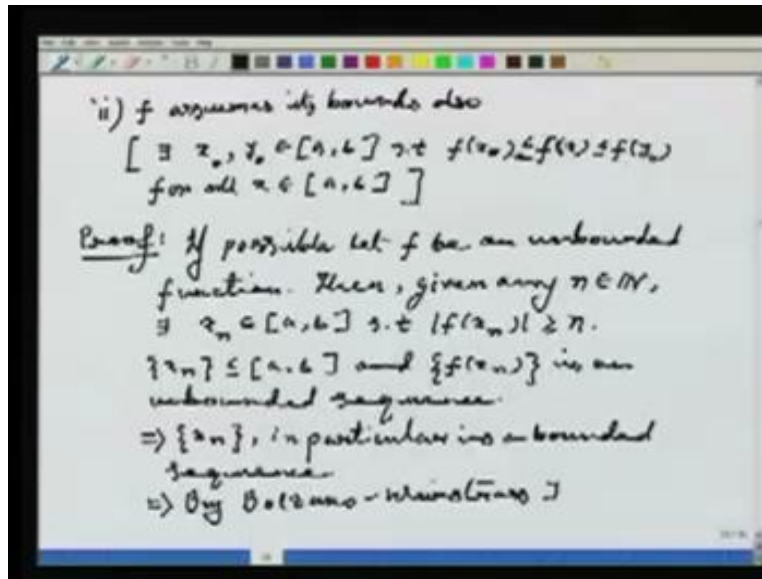 ii) f assumes its bounds also
[ ∃ x₀, y₀ ∈ [a,b] s.t f(x₀) ≤ f(x) ≤ f(y₀)
for all x ∈ [a,b] ]
Proof: If possible let f be an unbounded
function. Then, given any n ∈ ℕ,
∃ xₙ ∈ [a,b] s.t |f(xₙ)| ≥ n.
{xₙ} ⊆ [a,b] and {f(xₙ)} is an
unbounded sequence.
⇒ {xₙ}, in particular is a bounded
sequence.
⇒ By Bolzano-Weinstrass J